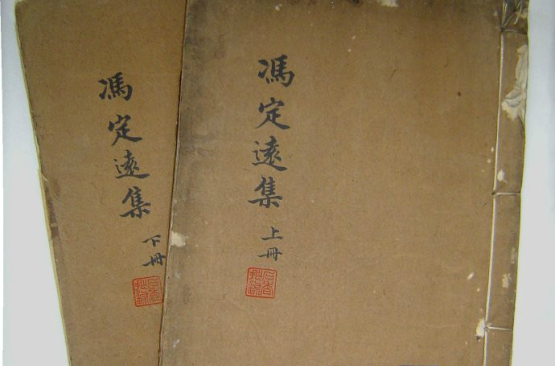 馮定遠集
上冊
馮定遠集
下冊